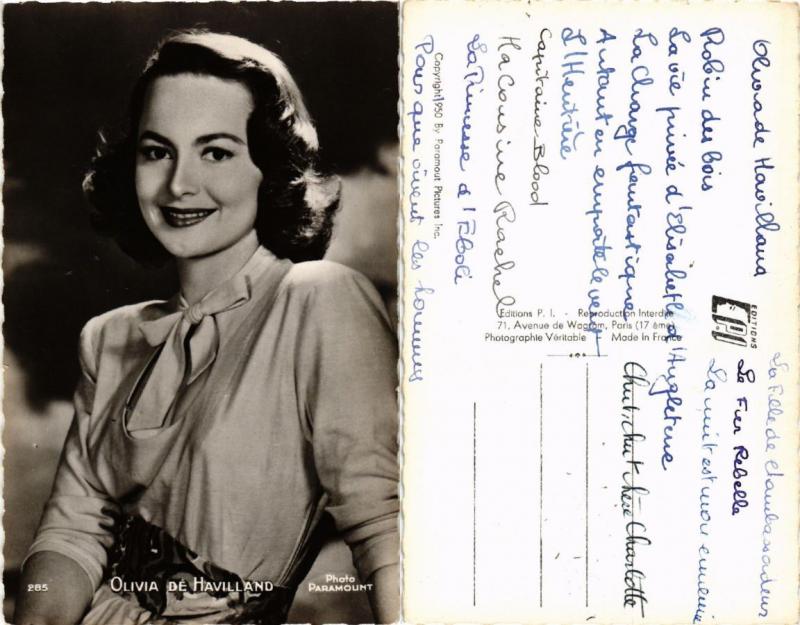 285
OLIVIA DE HAVILLAND
Photo
PARAMOUNT
Olivia de Havilland
Robin des bois
La vie privée d'Elisabeth d'Angleterre
La Charge fantastique
Autant en emporte le vent
L'Héritière
Capitaine Blood
Ma cousine Rachel
La Princesse d'Eboli
Pour que vivent les hommes
La Fille de l'ambassadeur
Le Fier Rebelle
La nuit est mon ennemie
Chut, chut chère Charlotte
Copyright 1950 By Paramount Pictures Inc.
EDITIONS
E.P.I
Editions P. I. - Reproduction Interdite
71, Avenue de Wagram, Paris (17 ème)
Photographie Véritable Made in France